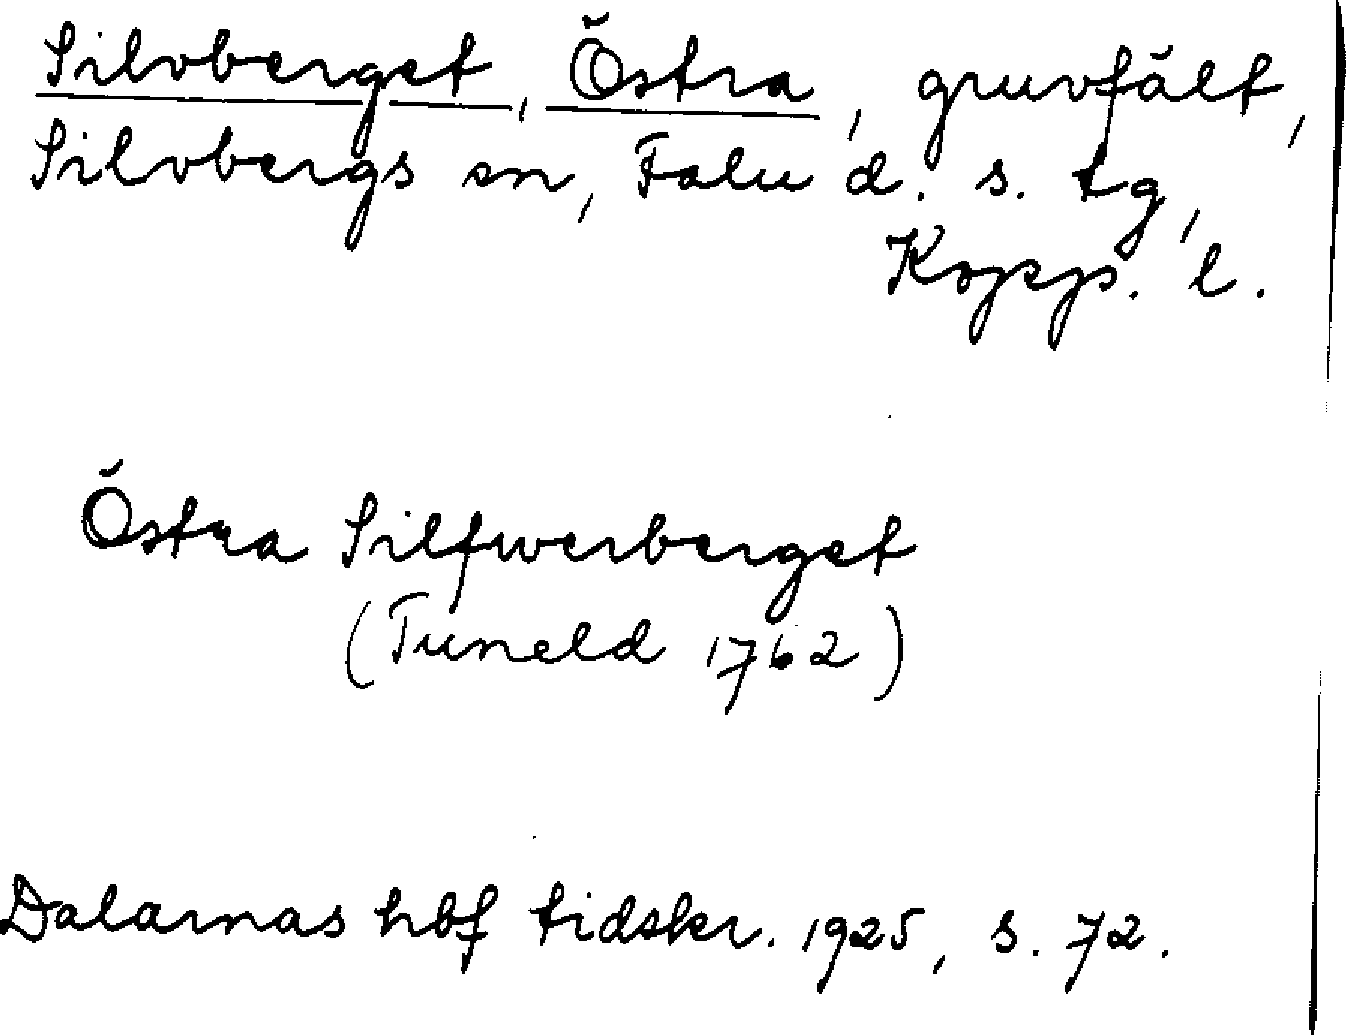 Silvberget, Östra, gruvfält,
Silvbergs sn, Falu d. s. tg,
Kopps. l.
Östra Silfwerberget
(Tuneld 1762)
Dalarnas hbf tidskr. 1925, s. 72.